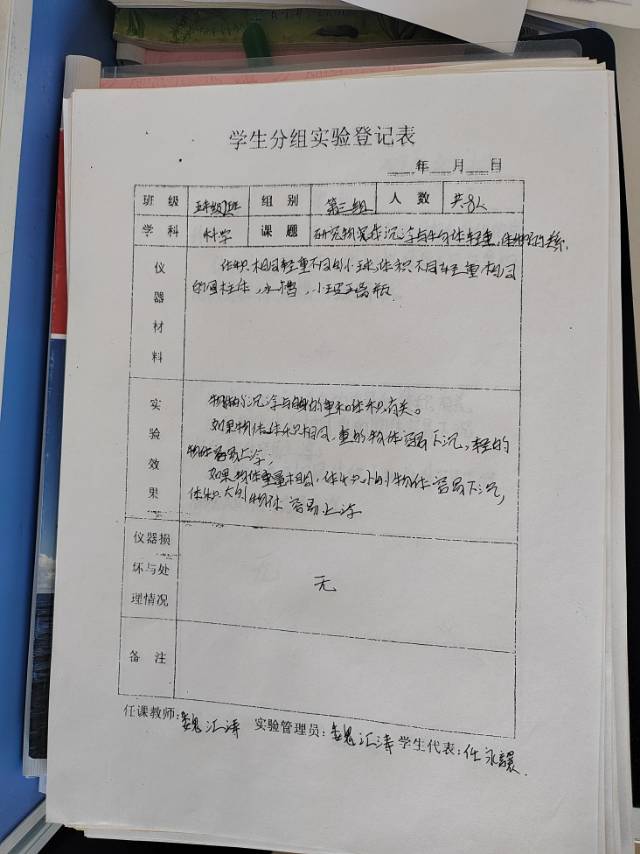 学生分组实验登记表
年 月 日
班级 五年级1班 组别 第三组 人数 共8人
学科 科学 课题 研究物体沉浮与物体轻重,体积的关系.
仪器材料 体积相同轻重不同的小球,体积不同轻重相同
的圆柱体,水槽,小
实验效果 物体的沉浮与物体的重和体积有关。
如果物体体积相同,重的物体容易下沉,轻的
物体容易上浮;
如果物体重量相同,体积小的物体容易下沉,
体积大的物体容易上浮
仪器损坏与处理情况 无
备注
任课教师: 魏汇涛 实验管理员: 魏汇涛 学生代表: 任永